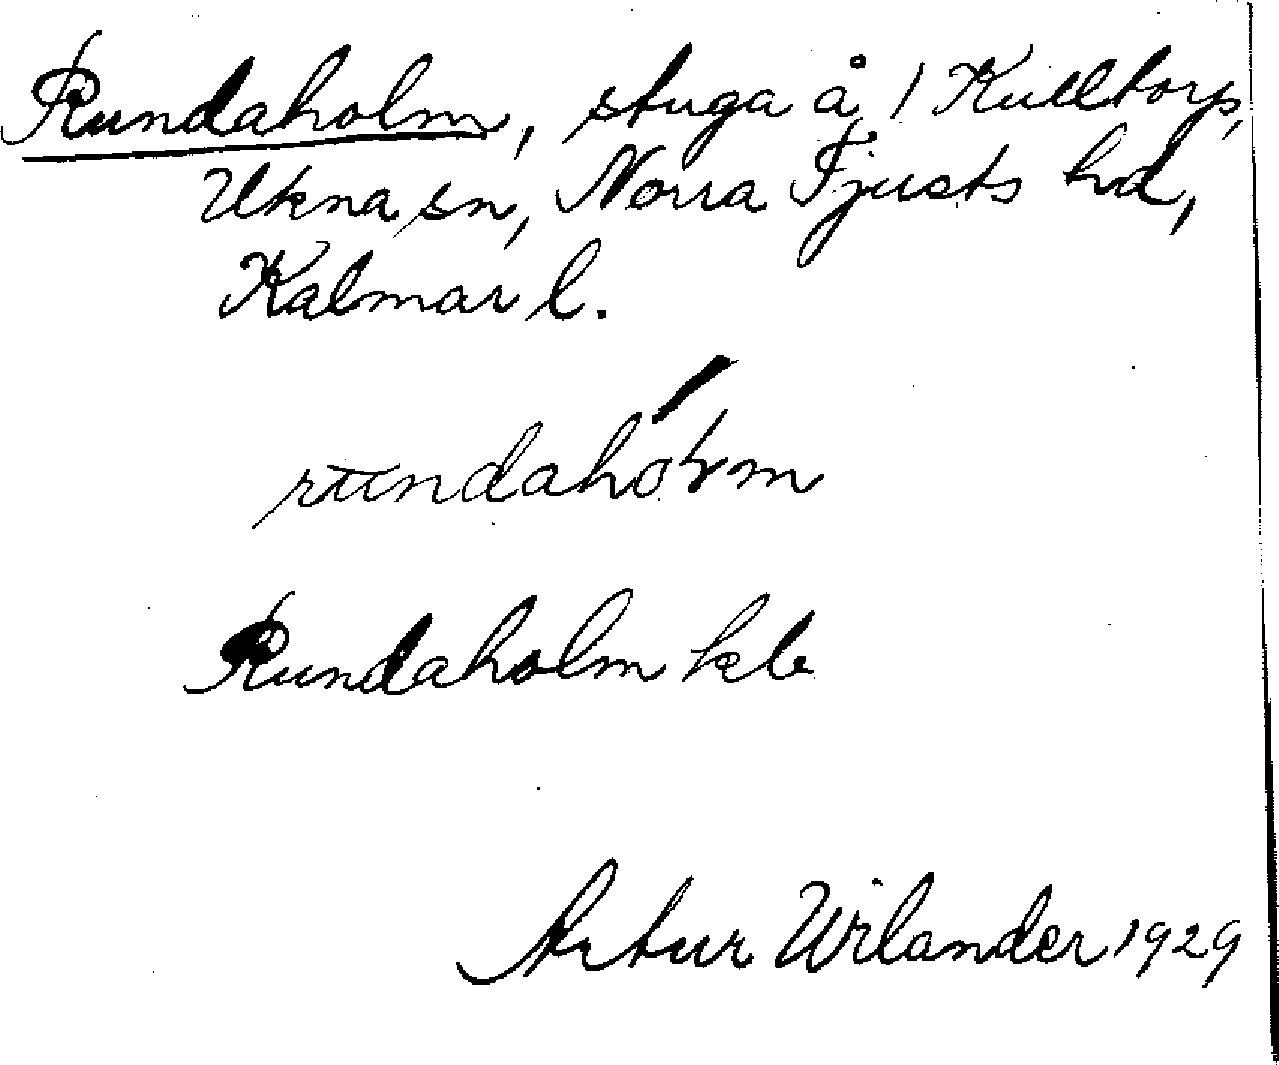 Rundaholm, stuga å 1 Kulltorp,
Ukna sn, Norra Tjusts hd,
Kalmar l.
rundahoḷ́m
Rundaholm kb
Artur Wilander 1929